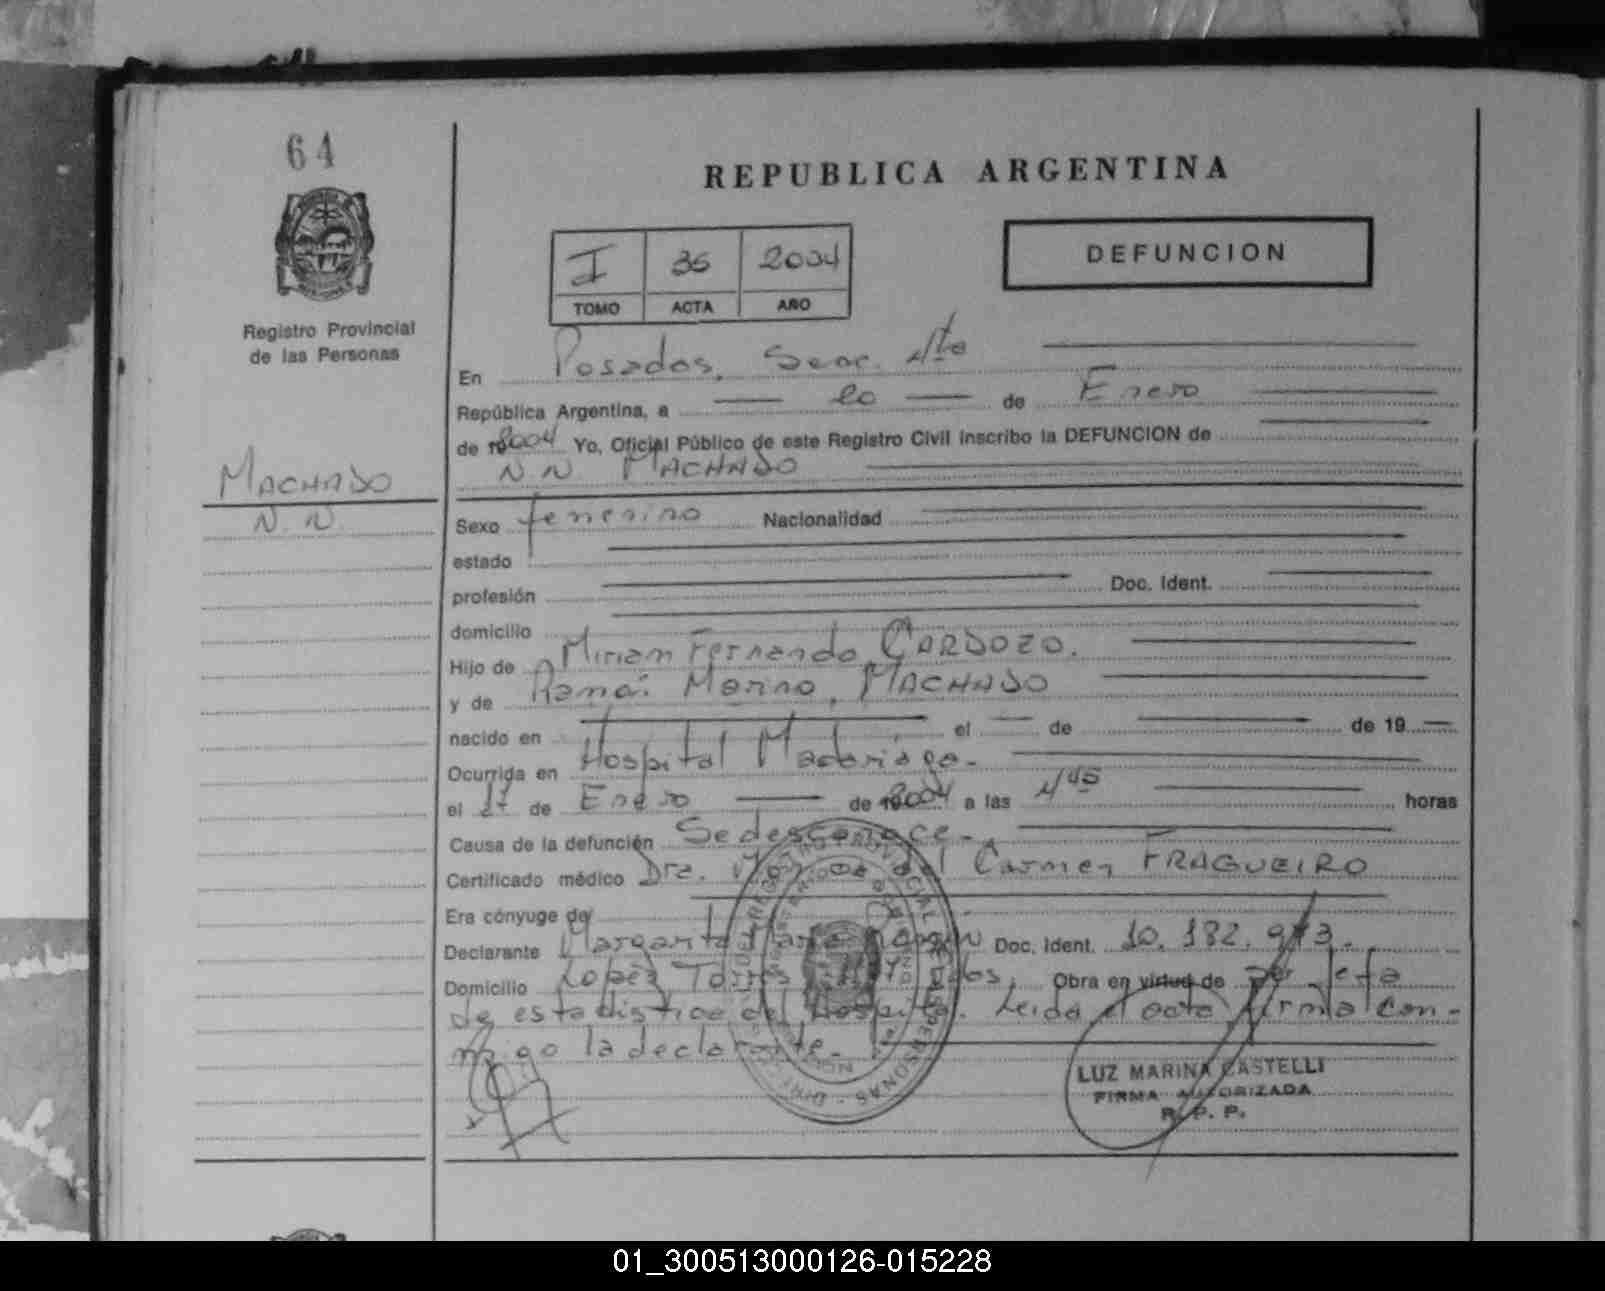 64
REPUBLICA ARGENTINA
I 36 2004
TOMO ACTA AÑO
DEFUNCION
Registro Provincial
de las Personas
En Posadas, Secc. 4ta
República Argentina, a de Enero
de 19 2004 Yo, Oficial Público de este Registro Civil inscribo la DEFUNCION de
N.N. MACHADO
MACHADO
N.N.
Sexo femenino Nacionalidad
estado
profesión Doc. Ident.
domicilio
Hijo de Miriam Fernanda CARDOZO.
y de Ramón Marino, MACHADO
nacido en el de de 19
Ocurrida en Hospital Madariaga.
el de Enero de 19 2004 a las 4 45 horas
Causa de la defunción Se desconoce.
Certificado médico Dra. del Carmen FRAGUEIRO
Era cónyuge de
Declarante Margarita Doc. Ident. 10.182.973.
Domicilio López Torres Obra en virtud de ser Jefa
de estadística del Hospital. Leída el acta, firma con-
migo la declarante.
LUZ MARINA CASTELLI
FIRMA AUTORIZADA
R. P. P.
01_300513000126-015228